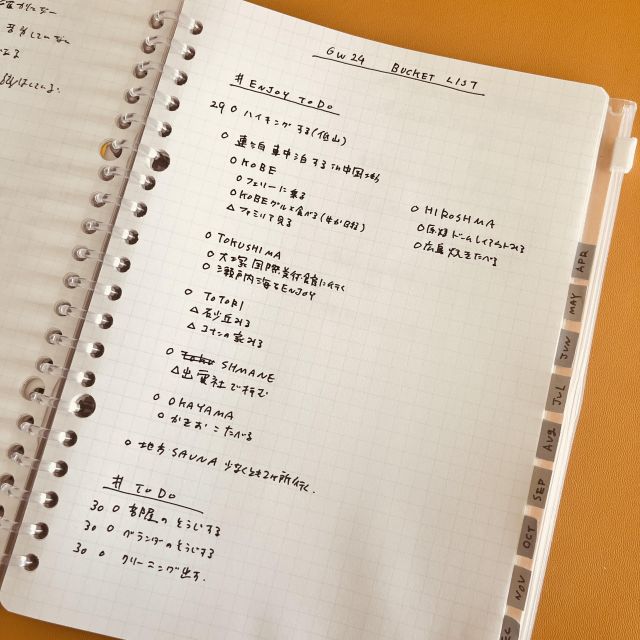 GW 24 BUCKET LIST
# ENJOY TO DO
29 ○ ハイキングする(低山)
○ 車中泊する in 中国地方
○ KOBE
○ フェリーに乗る
○ KOBEグルメ食べる(牛か日替)
△ ファミリアで見る
○ HIROSHIMA
○ 原爆ドーム みる
○ 広島焼きたべる
○ TOKUSHIMA
○ 大塚国際美術館に行く
○ 瀬戸内海をENJOY
○ TOTORI
△ 砂丘みる
△ コナンの家みる
○ SHMANE
△ 出雲社
○ OKAYAMA
○ かきおこたべる
○ 地方 SAUNA 少なくとも2ヶ所行く.
# TO DO
30 ○ 部屋のそうじする
30 ○ ベランダのそうじする
30 ○ クリーニング出す.
APR
MAY
JUN
JUL
AUG
SEP
OCT
NOV